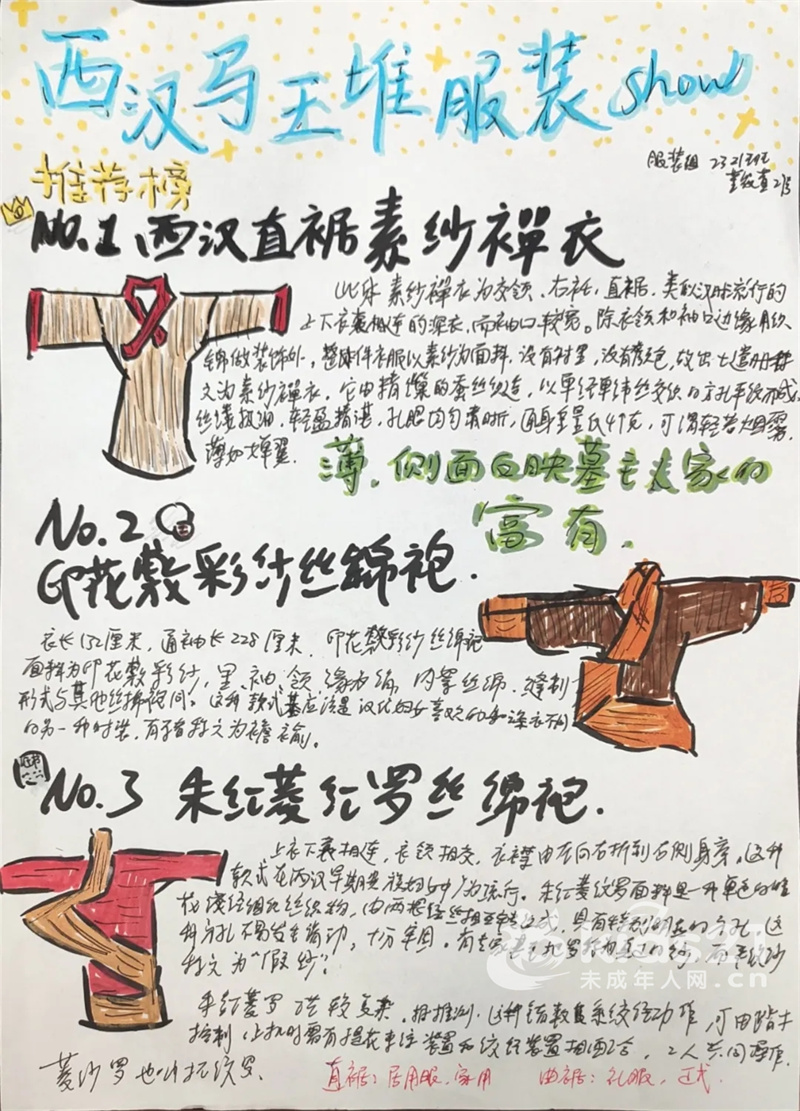 西汉马王堆服装show
服装组 2321班
推荐榜
NO.1 西汉直裾素纱襌衣
此件素纱襌衣为交领、右衽、直裾。类似汉时流行的
上下衣裳相连的深衣，而袖口较宽。除衣领和袖口边缘用织
锦做装饰外，整件衣服以素纱为面料，没有衬里，没有颜色，故出土遣册称
文为素纱襌衣。它由精缫的蚕丝织造，以单经单纬丝交织的方孔平纹而成
丝缕极细，轻盈精湛，孔眼均匀清晰，通身重量仅4克，可谓轻若烟雾，
薄如蝉翼。
薄，侧面反映墓主夫家的
富有.
No.2
印花敷彩纱丝锦袍.
衣长132厘米，通袖长228厘米. 印花敷彩纱丝绵袍
面料为印花敷彩纱，里、袖、领、缘为绢，内絮丝绵. 缝制
形式与其他丝绵袍同。这种款式基应该是汉代妇女喜欢的和深衣不同
的另一种时装，有学者释文为襜褕。
No.3 朱红菱纹罗丝绵袍.
上衣下裳相连，衣领相交，衣襟由左向右折到右侧身旁。这种
款式在西汉早期贵族妇女中广为流行。朱红菱纹罗面料是一种单色的暗
花绞经组织丝织物，由两根经丝相互绞合成，具有特别明显的方孔，这
种方孔不易发生滑动，十分牢固。有专家
释文为“假纱”.
朱红菱罗 较复杂，据推测，这种结
控制，上机时需有提花束综装置和绞经装置相配合，2人共同操作.
菱纱罗也叫杯纹罗.
直裾：居用服，家用 曲裾：礼服，正式.
未成年人网.cn